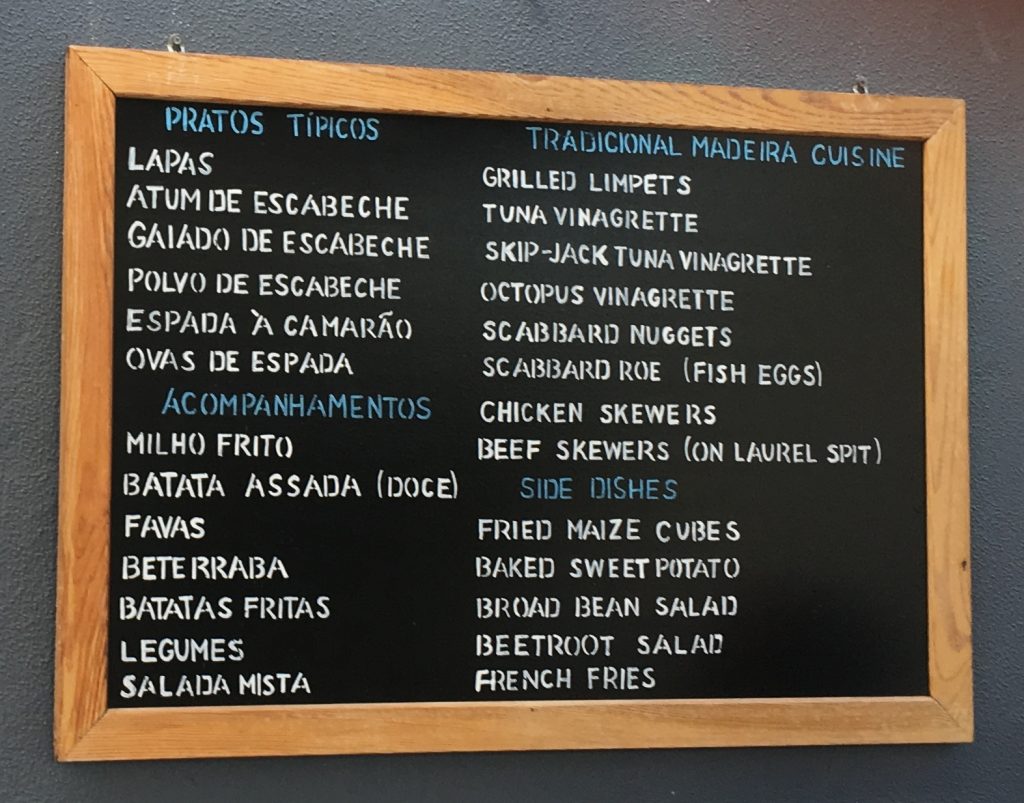 PRATOS TÍPICOS
LAPAS
ATUM DE ESCABECHE
GAIADO DE ESCABECHE
POLVO DE ESCABECHE
ESPADA À CAMARÃO
OVAS DE ESPADA
ACOMPANHAMENTOS
MILHO FRITO
BATATA ASSADA (DOCE)
FAVAS
BETERRABA
BATATAS FRITAS
LEGUMES
SALADA MISTA
TRADICIONAL MADEIRA CUISINE
GRILLED LIMPETS
TUNA VINAGRETTE
SKIP-JACK TUNA VINAGRETTE
OCTOPUS VINAGRETTE
SCABBARD NUGGETS
SCABBARD ROE (FISH EGGS)
CHICKEN SKEWERS
BEEF SKEWERS (ON LAUREL SPIT)
SIDE DISHES
FRIED MAIZE CUBES
BAKED SWEET POTATO
BROAD BEAN SALAD
BEETROOT SALAD
FRENCH FRIES